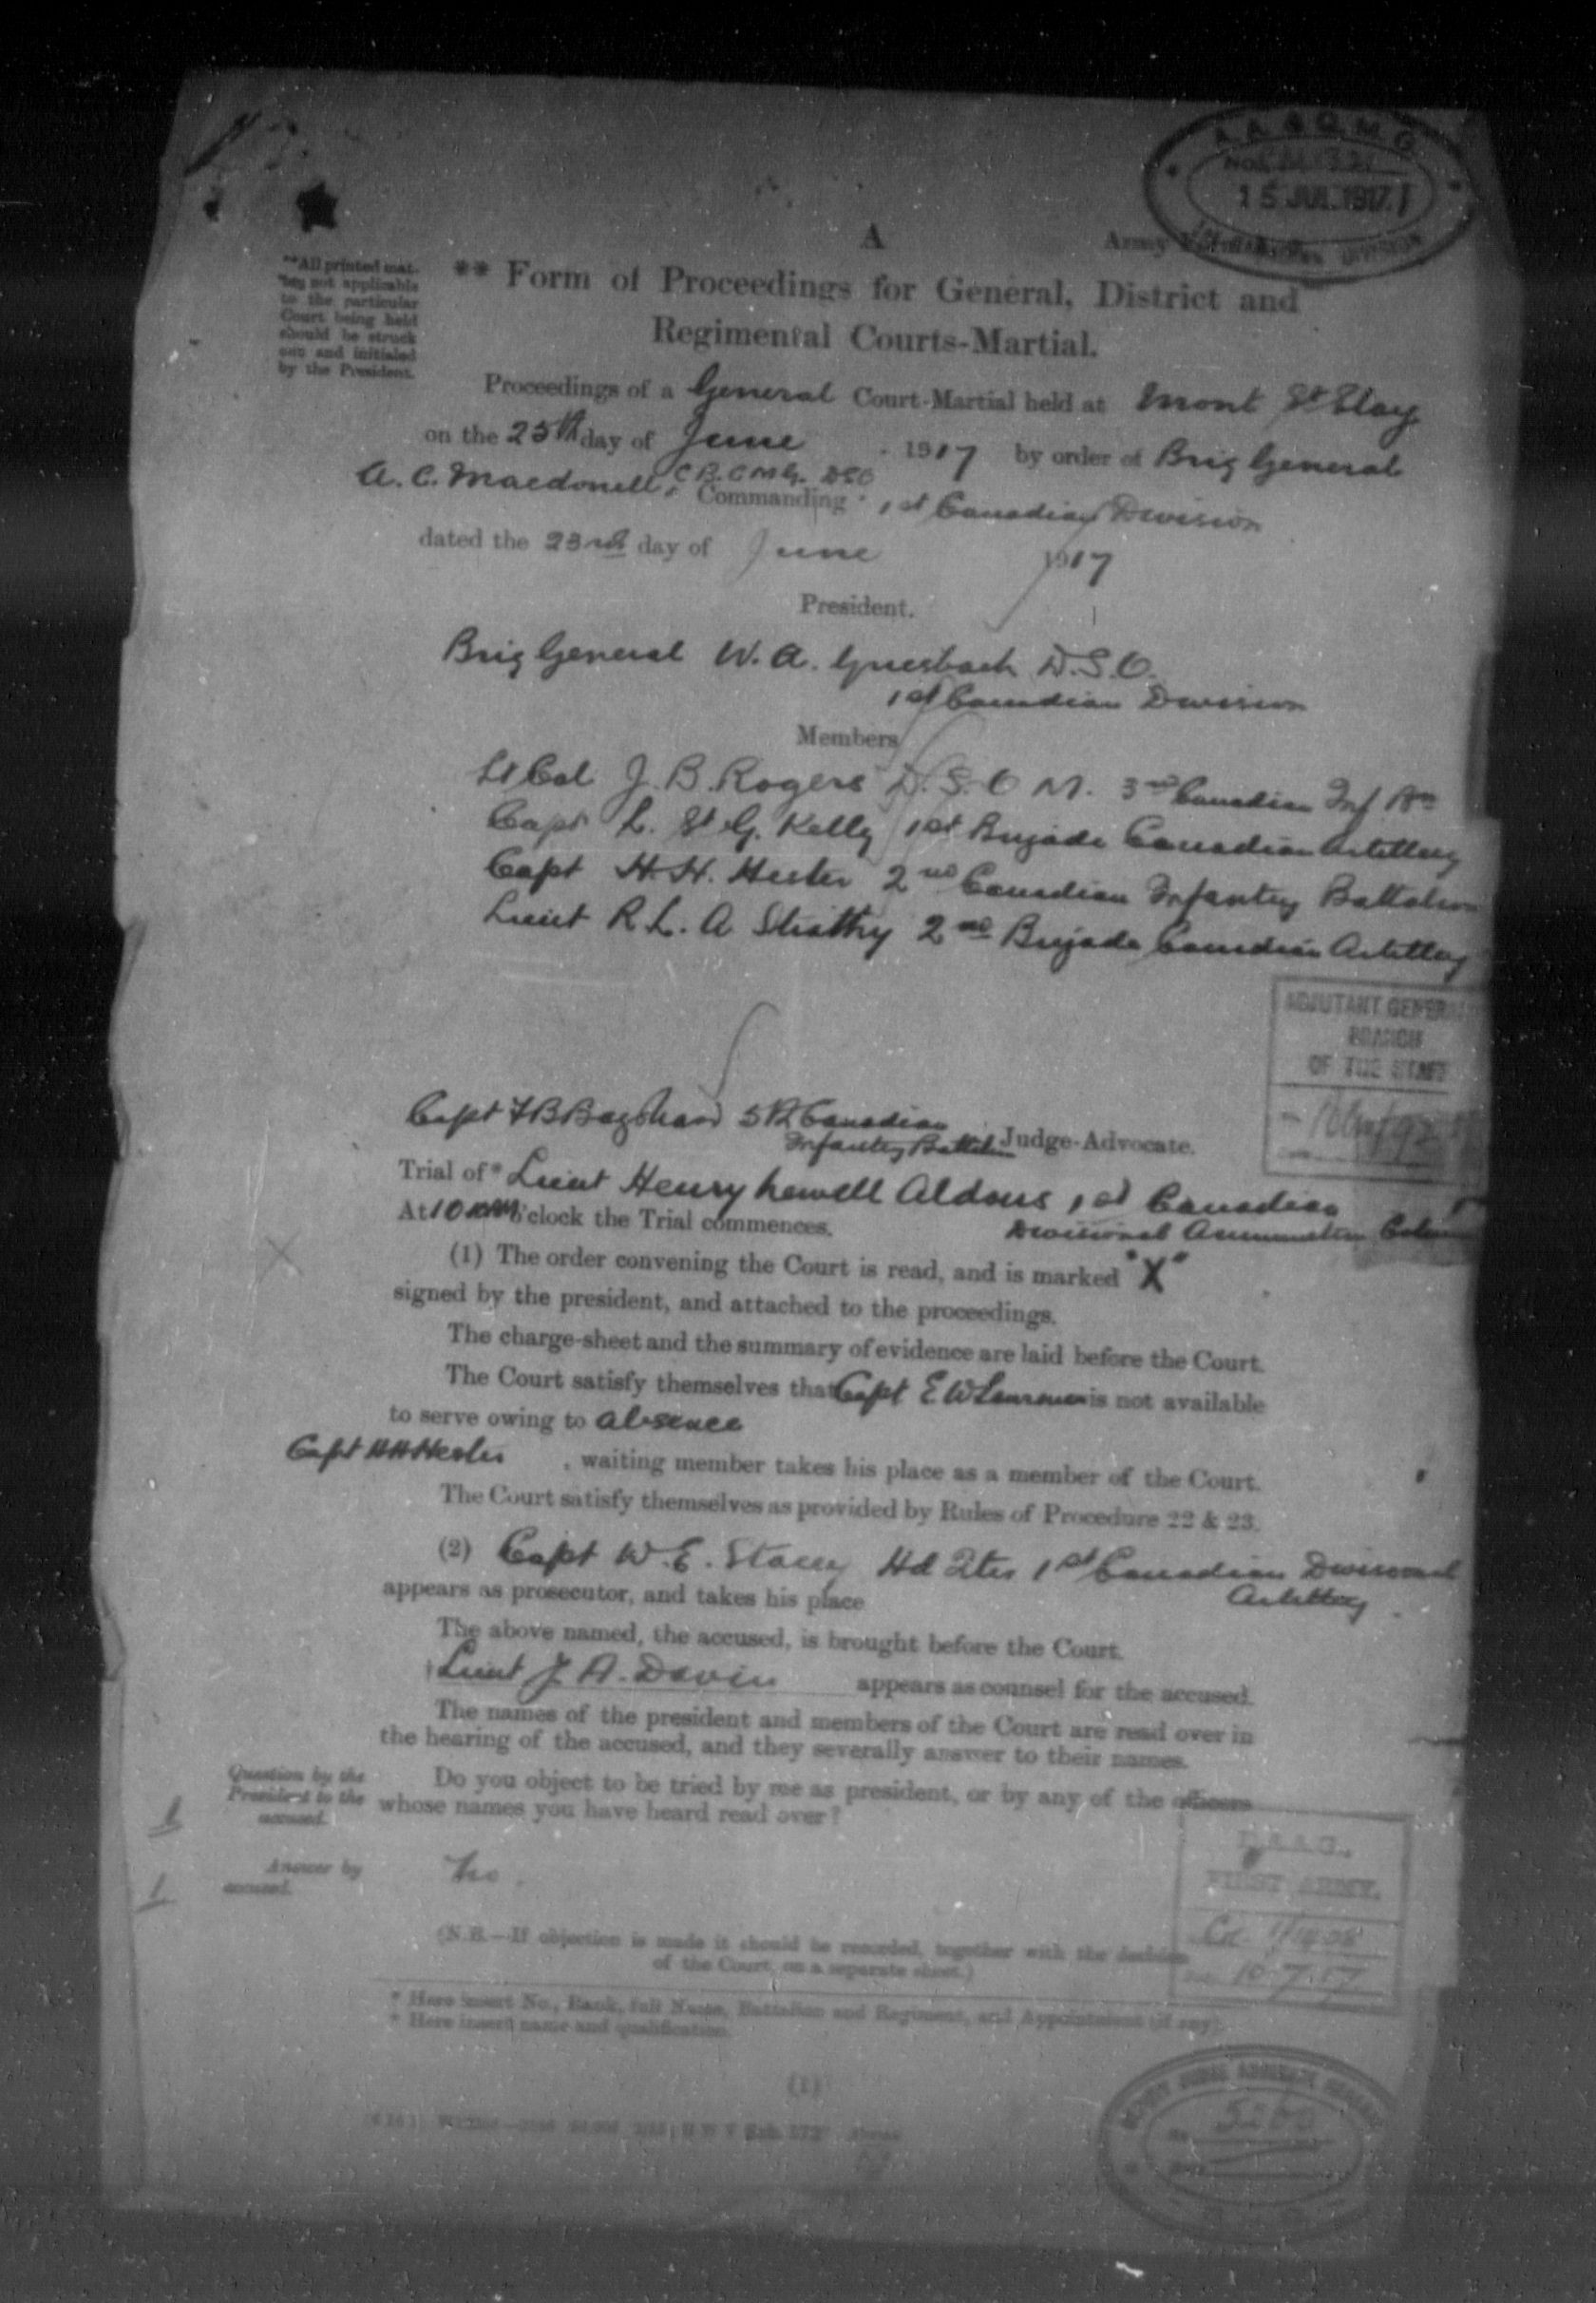 A. A. & Q. M. G.
15 JUL 1917
A
Army
**All printed mat-
ter not applicable
to the particular
Court being held
should be struck
out and initialed
by the President.
** Form of Proceedings for General, District and
Regimental Courts-Martial.
Proceedings of a General Court-Martial held at Mont St Eloy
on the 25th day of June 1917 by order of Brig General
A. C. Macdonell, C.B. C.M.G. DSO Commanding 1st Canadian Division
dated the 23rd day of June 1917
President.
Brig General W. A. Griesbach D.S.O.
1st Canadian Division
Members
Lt Col J. B. Rogers D.S.O M. 3rd Canadian Inf Bn
Capt L. St G. Kelly 1st Brigade Canadian Artillery
Capt H. H. Hester 2nd Canadian Infantry Battalion
Lieut R L. A Strathy 2nd Brigade Canadian Artillery
ADJUTANT GENERAL
BRANCH
OF THE STAFF
Capt F B Bagshaw 5th Canadian
Infantry Battalion Judge-Advocate.
Trial of* Lieut Henry Lewell Aldous 1st Canadian
Divisional Ammunition Column
At 10 AM o'clock the Trial commences.
(1) The order convening the Court is read, and is marked "X"
signed by the president, and attached to the proceedings.
The charge-sheet and the summary of evidence are laid before the Court.
The Court satisfy themselves that Capt E W is not available
to serve owing to absence
Capt H H Hester , waiting member takes his place as a member of the Court.
The Court satisfy themselves as provided by Rules of Procedure 22 & 23.
(2) Capt W. E. Stacey Hd Qtrs 1st Canadian Divisional
Artillery
appears as prosecutor, and takes his place
The above named, the accused, is brought before the Court.
Lieut J A. Davin appears as counsel for the accused.
The names of the president and members of the Court are read over in
the hearing of the accused, and they severally answer to their names.
Question by the
President to the
accused.
Do you object to be tried by me as president, or by any of the officers
whose names you have heard read over?
Answer by
accused.
No.
D.A.A.G.,
FIRST ARMY.
10.7.17
(N.B.—If objection is made it should be recorded, together with the decision
of the Court, on a separate sheet.)
* Here insert No., Rank, full Name, Battalion and Regiment, and Appointment (if any).
* Here insert name and qualification.
(1)